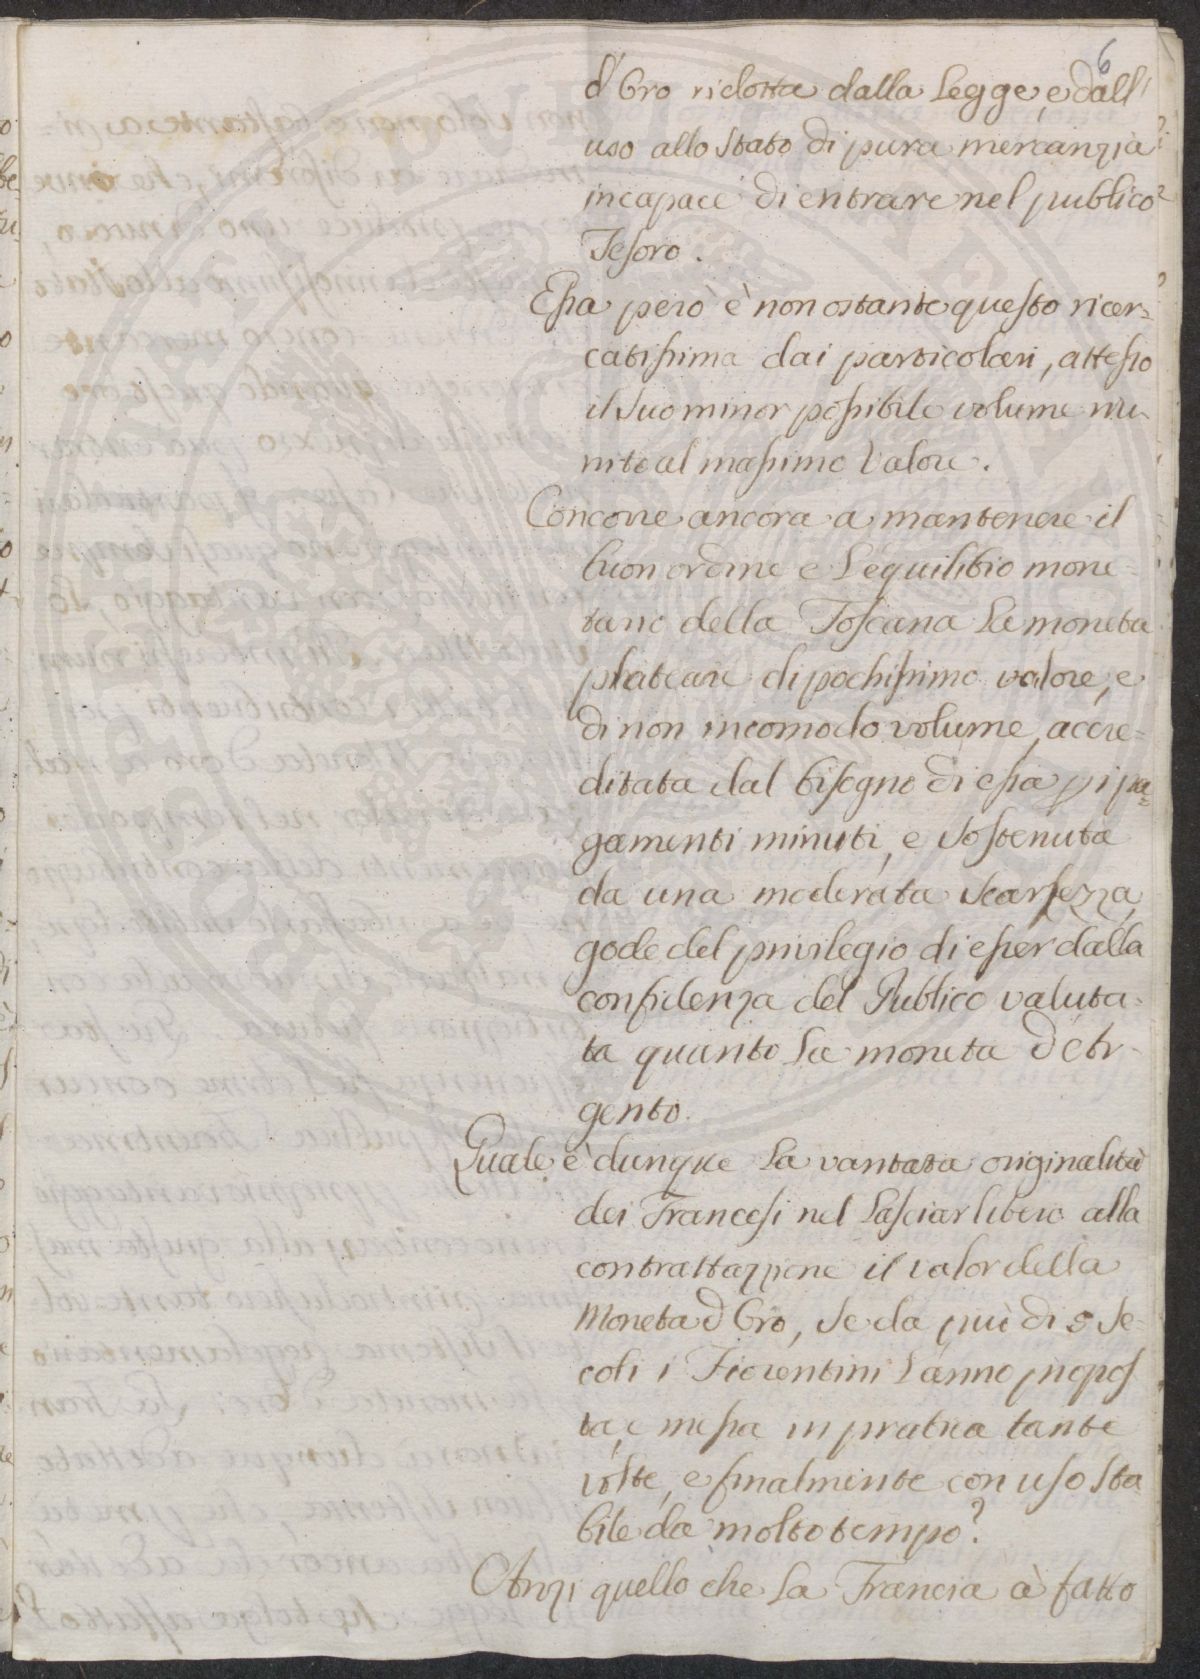 6
d'Oro ridotta dalla Legge, e dall'
uso allo Stato di pura mercanzia
incapace di entrare nel publico
Tesoro.
Essa però è non ostante questo ricer=
catissima dai particolari, atteso
il suo minor possibile volume unito
nito al massimo Valore.
Concorre ancora a mantenere il
buon ordine e l'equilibrio mone=
tario della Toscana la moneta
plateare di pochissimo valore, e
di non incomodo volume, accre=
ditata dal bisogno di essa p i pa=
gamenti minuti, e sostenuta
da una moderata scarsezza,
gode del privilegio di esser dalla
confidenza del Publico valuta=
ta quanto la moneta d'Ar=
gento.
Quale è dunque la vantata originalità
dei Francesi nel lasciar libero alla
contrattazione il valor della
Moneta d'Oro, se da più di 5 se=
coli i Fiorentini l'anno propos
ta, e messa in pratica tante
volte, e finalmente con uso sta
bile da molto tempo?
Anzi quello che la Francia à fatto